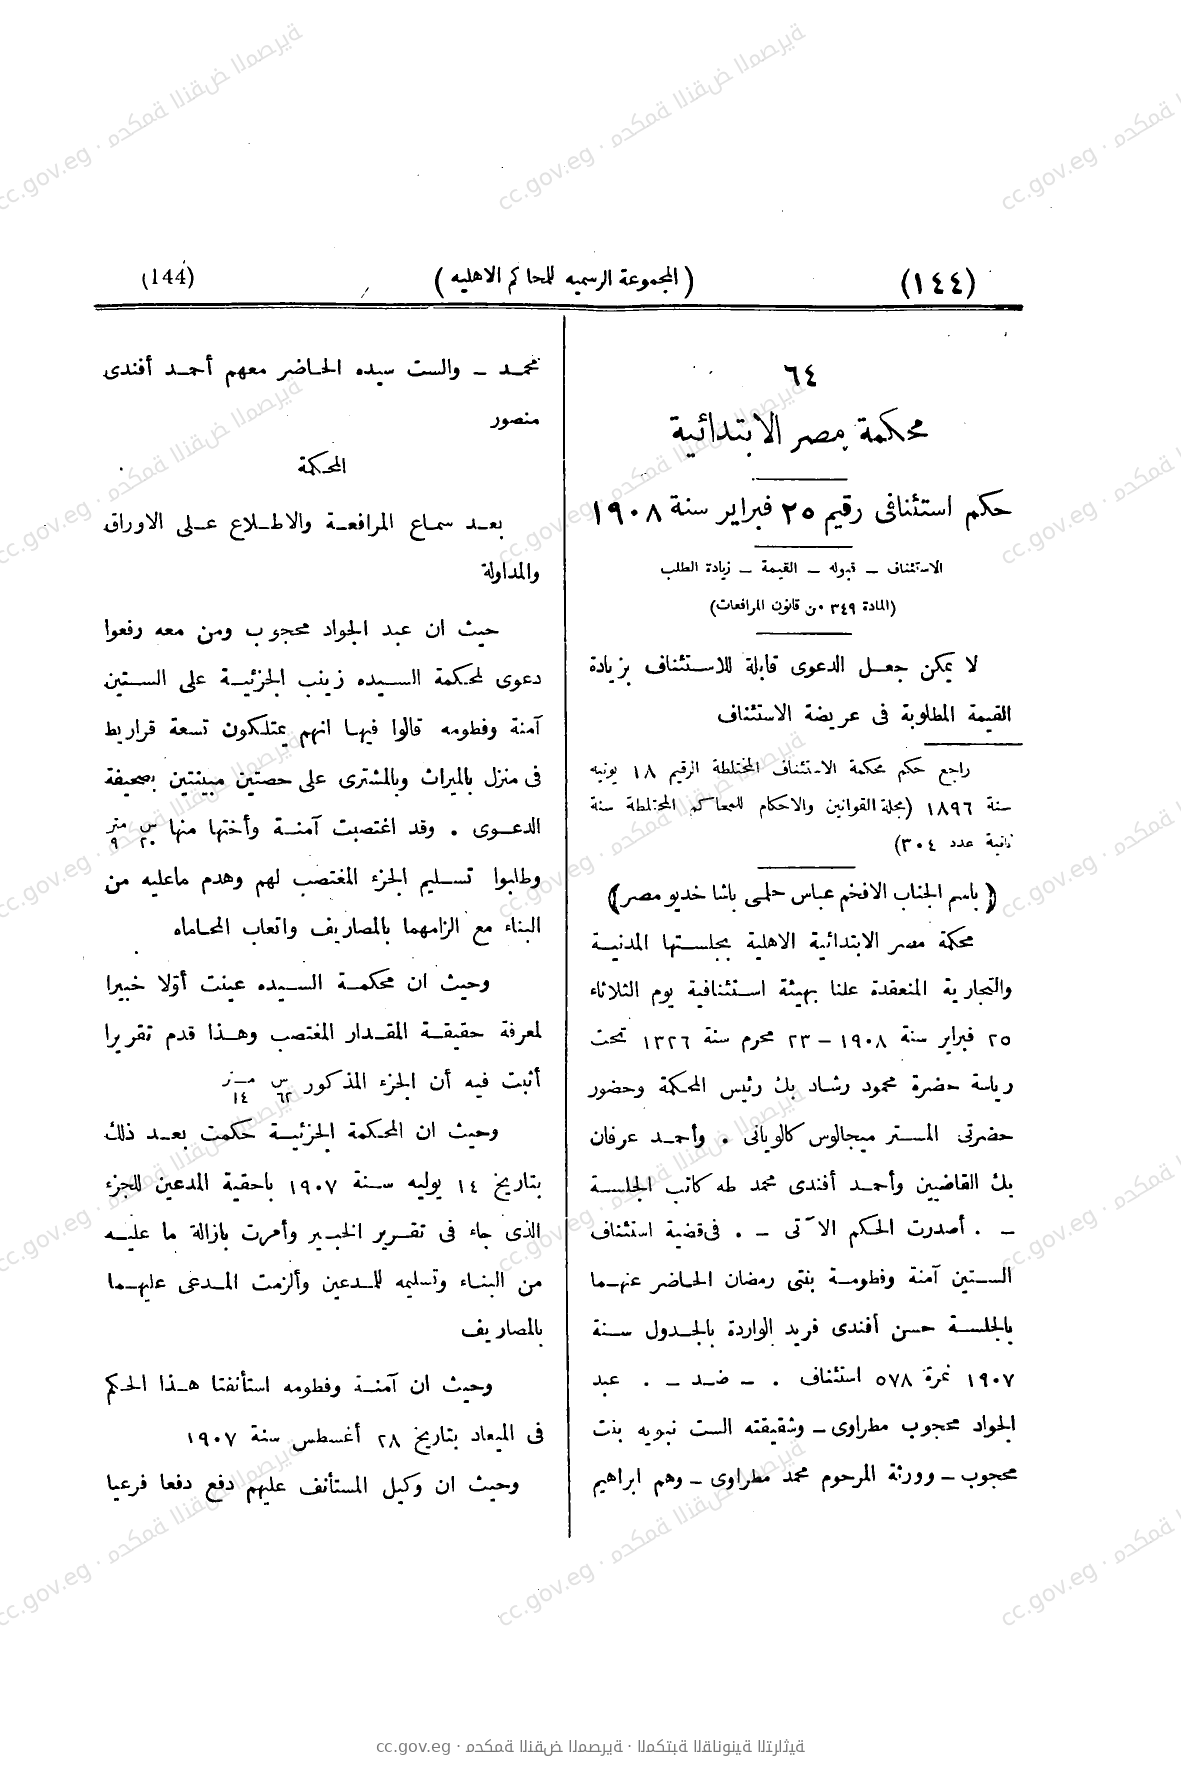 (144)
(المجموعة الرسميه للمحاكم الاهليه)
(١٤٤)
٦٤
محكمة مصر الابتدائية
حكم استئنافى رقيم ٢٥ فبراير سنة ١٩٠٨
الاستئناف – قبوله – القيمة – زيادة الطلب
(المادة ٣٤٩ من قانون المرافعات)
لا يمكن جعل الدعوى قابلة للاستئناف بزيادة
القيمة المطلوبة فى عريضة الاستئناف
راجع حكم محكمة الاستئناف المختلطة الرقيم ١٨ يونيه
سنة ١٨٩٦ (مجلة القوانين والاحكام للمحاكم المختلطة سنة
ثانية عدد ٣٠٤)
(باسم الجناب الافخم عباس حلمى باشا خديو مصر)
محكمة مصر الابتدائية الاهلية بجلستها المدنية
والتجارية المنعقدة علنا بهيئة استئنافية يوم الثلاثاء
٢٥ فبراير سنة ١٩٠٨ – ٢٣ محرم سنة ١٣٢٦ تحت
رياسة حضرة محمود رشاد بك رئيس المحكمة وحضور
حضرتى المستر ميجالوس كالويانى . وأحمد عرفان
بك القاضيين وأحمد أفندى محمد طه كاتب الجلسة
– . أصدرت الحكم الآتى – . فى قضية استئناف
الستين آمنة وفطومة بنتى رمضان الحاضر عنهما
بالجلسة حسن أفندى فريد الواردة بالجدول سنة
١٩٠٧ نمرة ٥٧٨ استئناف . – ضد – . عبد
الجواد محجوب مطراوى – وشقيقته الست نبويه بنت
محجوب – وورثة المرحوم محمد مطراوى – وهم ابراهيم
محمد – والست سيده الحاضر معهم أحمد أفندى
منصور
المحكمة
بعد سماع المرافعة والاطلاع على الاوراق
والمداولة
حيث ان عبد الجواد محجوب ومن معه رفعوا
دعوى لمحكمة السيده زينب الجزئية على الستين
آمنة وفطومه قالوا فيها انهم يمتلكون تسعة قراريط
فى منزل بالميراث وبالمشترى على حصتين مبينتين بصحيفة
الدعوى . وقد اغتصبت آمنة وأختها منها س ٢٠ متر ٩
وطلبوا تسليم الجزء المغتصب لهم وهدم ماعليه من
البناء مع الزامهما بالمصاريف واتعاب المحاماه
وحيث ان محكمة السيده عينت أوّلا خبيرا
لمعرفة حقيقة المقدار المغتصب وهذا قدم تقريرا
أثبت فيه أن الجزء المذكور س ٦٢ متر ١٤
وحيث ان المحكمة الجزئية حكمت بعد ذلك
بتاريخ ١٤ يوليه سنة ١٩٠٧ باحقية المدعين للجزء
الذى جاء فى تقرير الخبير وأمرت بازالة ما عليه
من البناء وتسليمه للمدعين وألزمت المدعى عليهما
بالمصاريف
وحيث ان آمنة وفطومه استأنفتا هذا الحكم
فى الميعاد بتاريخ ٢٨ أغسطس سنة ١٩٠٧
وحيث ان وكيل المستأنف عليهم دفع دفعا فرعيا
cc.gov.eg · محكمة النقض المصرية · المكتبة القانونية التراثية